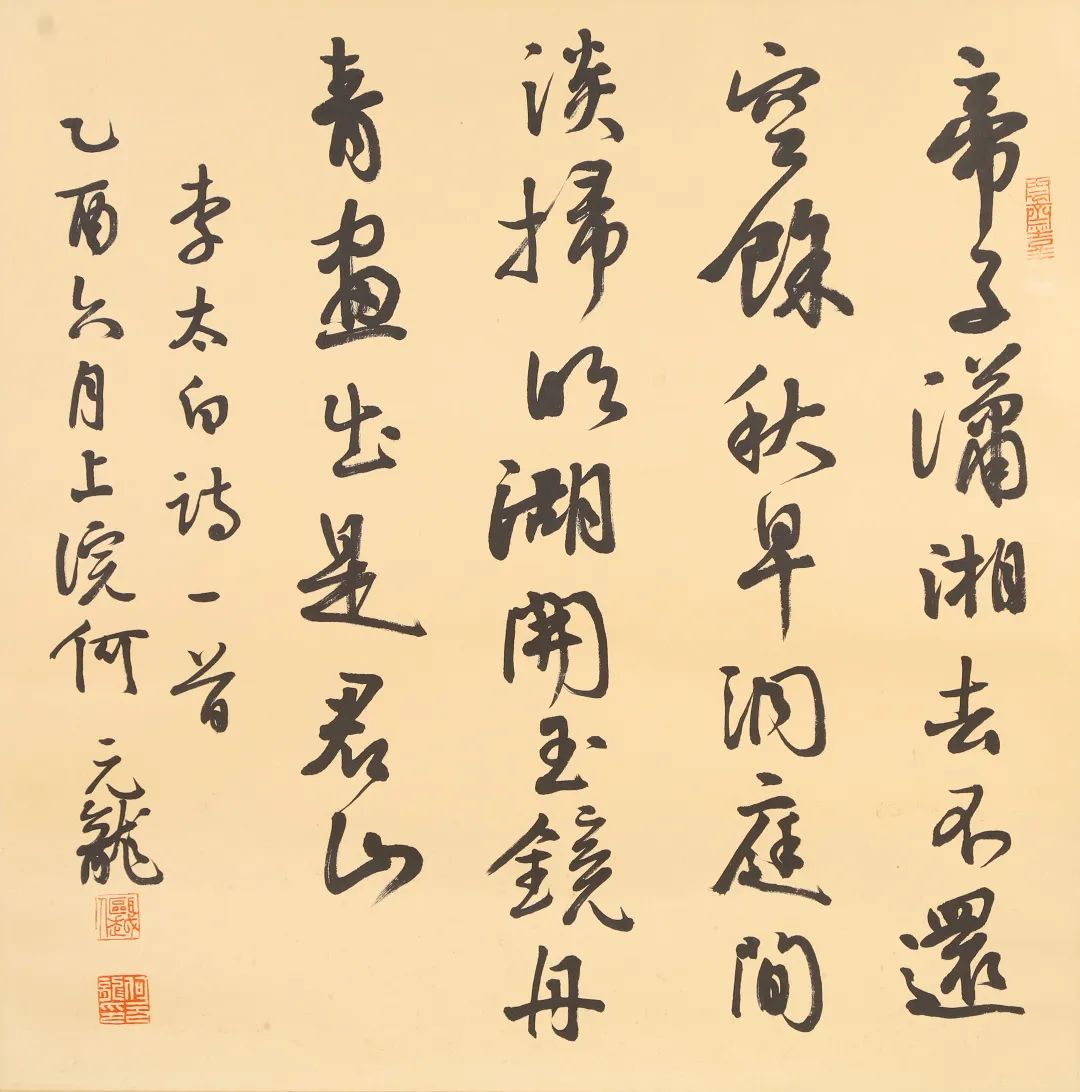 帝子瀟湘去不還
空餘秋早洞庭間
淡掃明湖開玉鏡丹
青畫出是君山
李太白詩一首
乙酉六月上浣何元龍